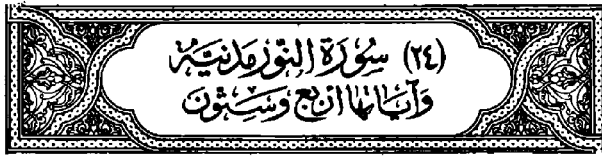 (٢٤) سُورَةُ النُّورِ مَدَنِيَّة
وَآيَاتُهَا أَرْبَعٌ وَسِتُّونَ